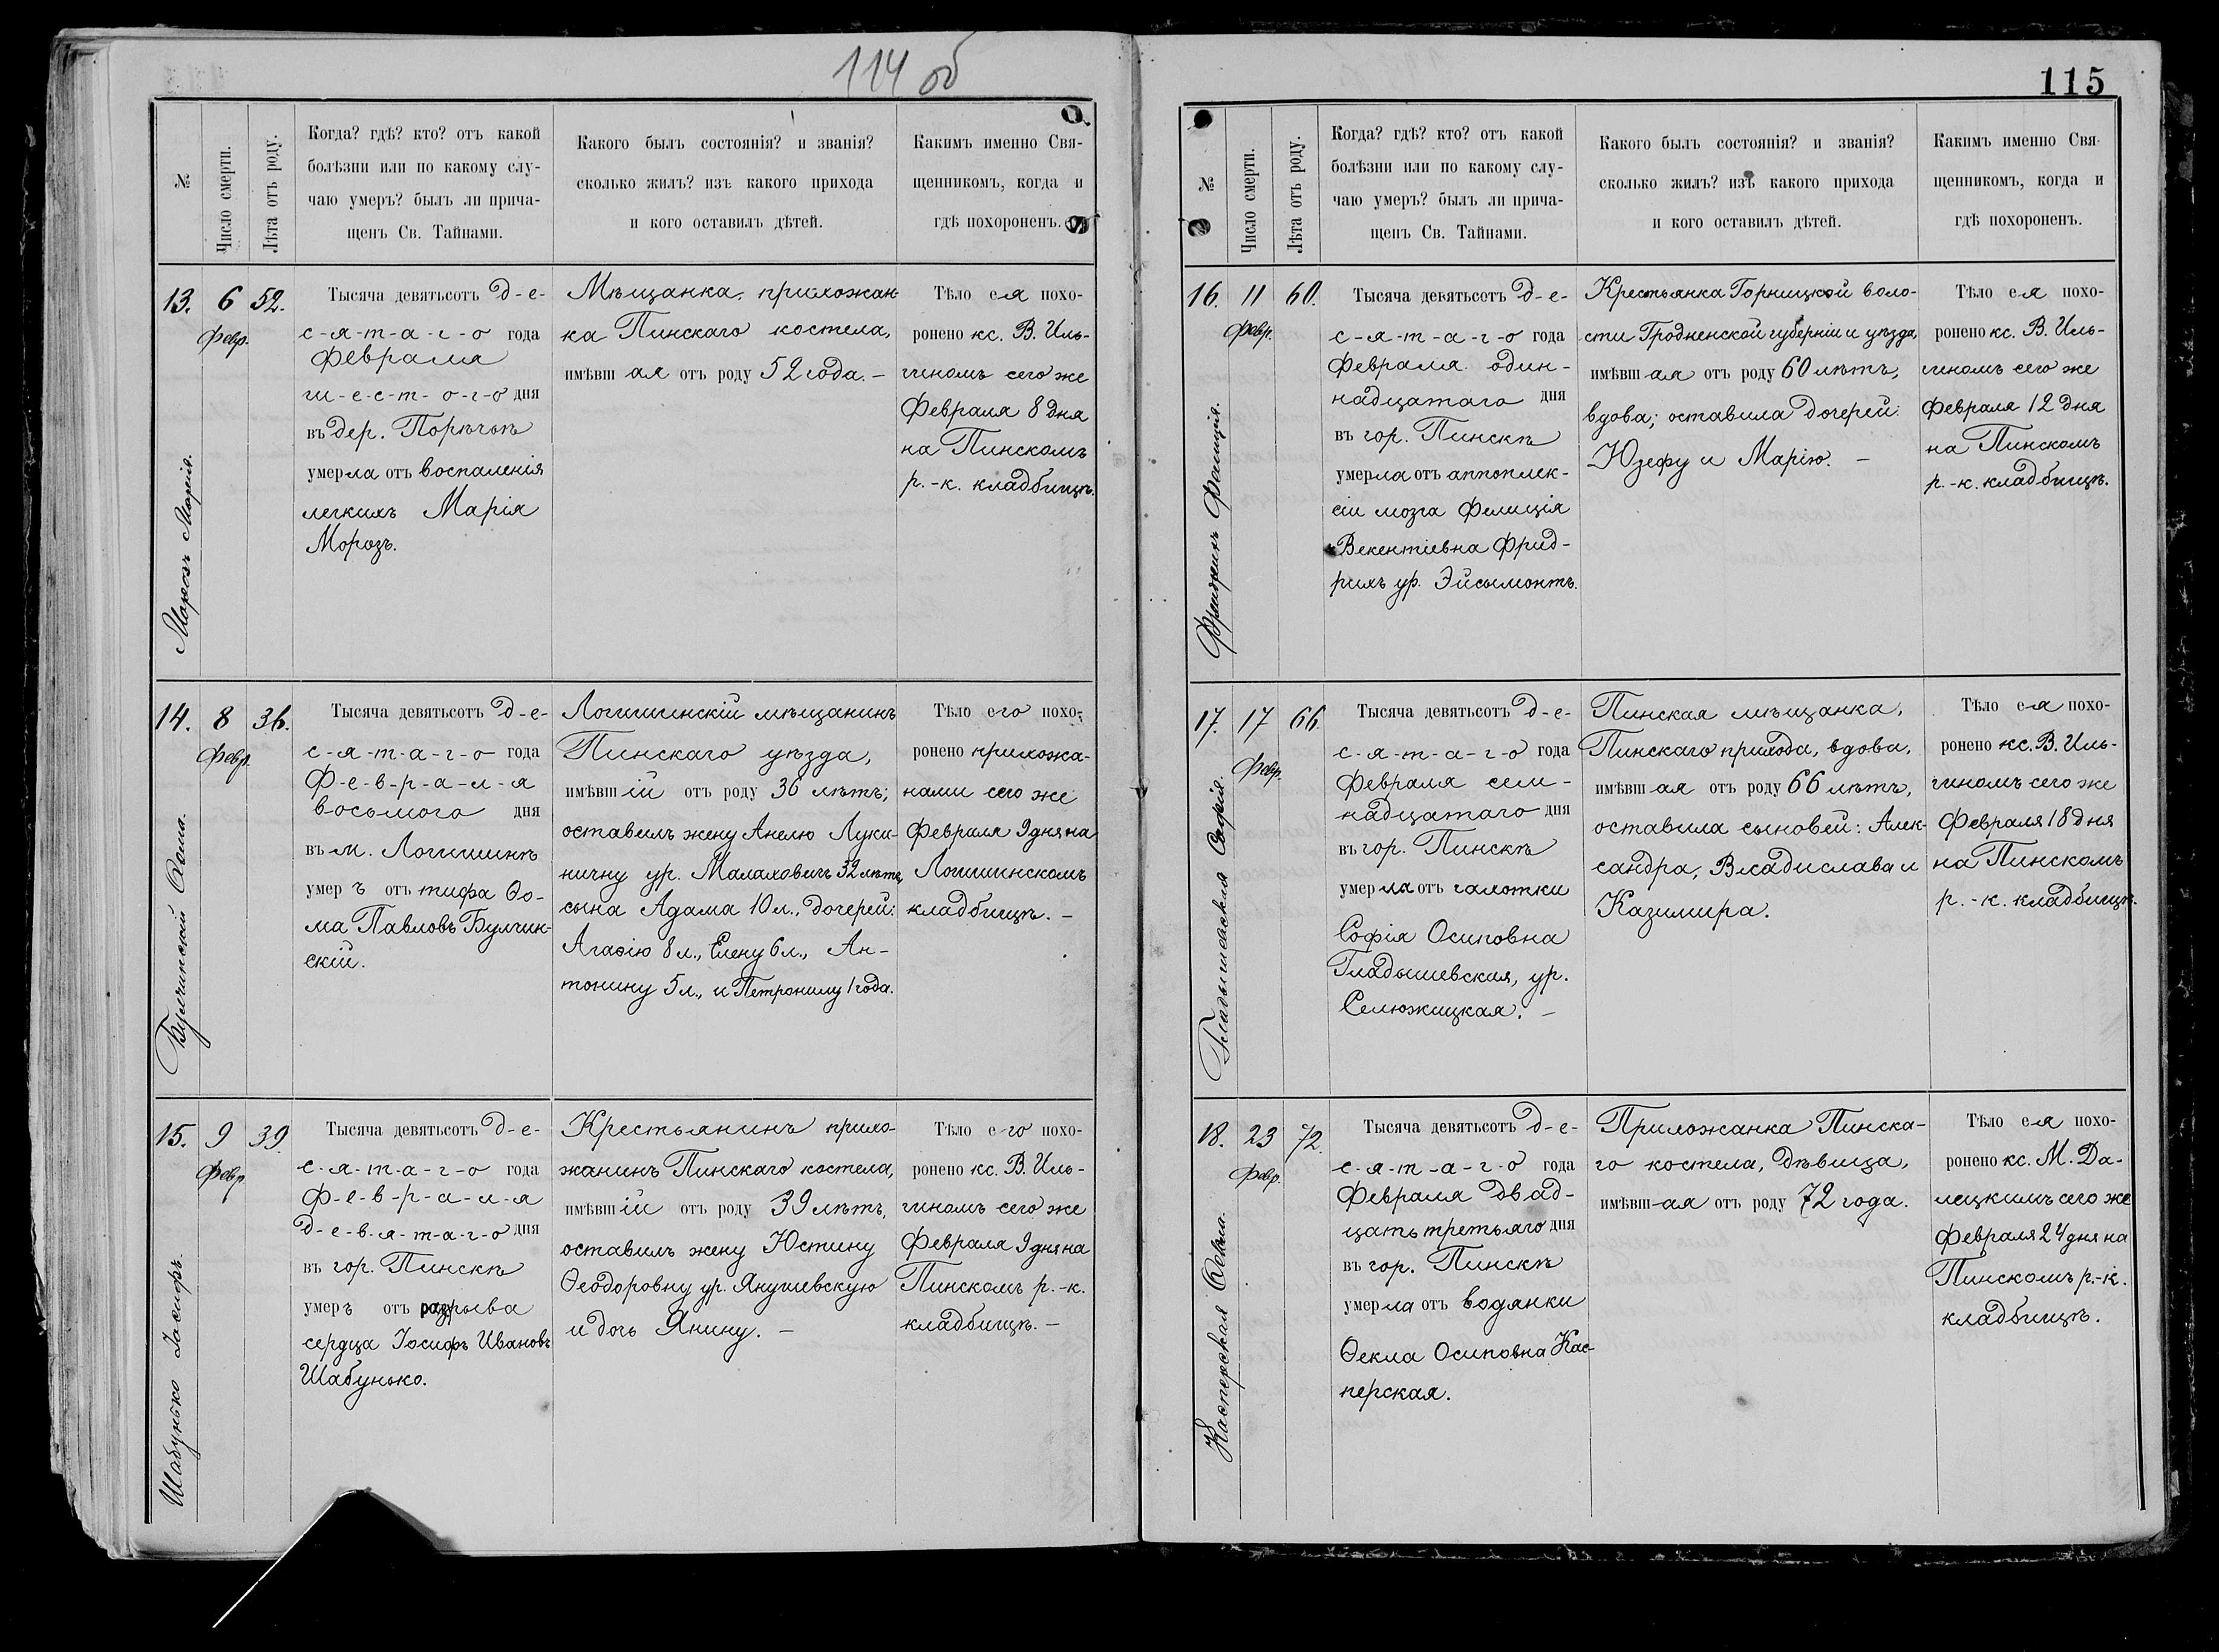 114 об
№
Число смерти.
Лѣта отъ роду.
Когда? гдѣ? кто? отъ какой
болѣзни или по какому слу-
чаю умеръ? былъ ли прича-
щенъ Св. Тайнами.
Какого былъ состоянія? и званія?
сколько жилъ? изъ какого прихода
и кого оставилъ дѣтей.
Какимъ именно Свя-
щенникомъ, когда и
гдѣ похороненъ.
13.
6
Февр.
52.
Морозъ Марія.
Тысяча девятьсотъ д-е-
с-я-т-а-г-о года
Февраля
ш-е-с-т-о-г-о дня
въ дер. Порѣчьѣ
умерла отъ воспаленія
легкихъ Марія
Морозъ.
Мѣщанка, прихожан-
ка Пинскаго костела,
имѣвш ая отъ роду 52 года. –
Тѣло ея похо-
ронено кс. В. Иль-
гиномъ сего же
Февраля 8 дня
на Пинскомъ
р.-к. кладбищѣ.
14.
8
Февр.
36.
Булгинскій Ѳома.
Тысяча девятьсотъ д-е-
с-я-т-а-г-о года
Ф-е-в-р-а-л-я
восьмого дня
въ м. Логишинѣ
умер ъ отъ тифа Ѳо-
ма Павловъ Булгин-
скій.
Логишинскій мѣщанинъ
Пинскаго уѣзда,
имѣвш ій отъ роду 36 лѣтъ;
оставилъ жену Анелю Луки-
ничну ур. Малаховичъ 32 лѣтъ,
сына Адама 10 л., дочерей:
Агафію 8 л., Елену 6 л., Ан-
тонину 5 л., и Петронилу 1 года.
Тѣло его похо-
ронено прихожа-
нами сего же
Февраля 9 дня на
Логишинскомъ
кладбищѣ. –
15.
9
Февр.
39.
Шабунько Іосифъ.
Тысяча девятьсотъ д-е-
с-я-т-а-г-о года
Ф-е-в-р-а-л-я
д-е-в-я-т-а-г-о дня
въ гор. Пинскѣ
умеръ отъ разрыва
сердца Іосифъ Ивановъ
Шабунько.
Крестьянинъ прихо-
жанинъ Пинскаго костела,
имѣвш ій отъ роду 39 лѣтъ,
оставилъ жену Юстину
Ѳеодоровну ур. Янушевскую
и дочь Янину. –
Тѣло его похо-
ронено кс. В. Иль-
гиномъ сего же
Февраля 9 дня на
Пинскомъ р.-к.
кладбищѣ. –
115
№
Число смерти.
Лѣта отъ роду.
Когда? гдѣ? кто? отъ какой
болѣзни или по какому слу-
чаю умеръ? былъ ли прича-
щенъ Св. Тайнами.
Какого былъ состоянія? и званія?
сколько жилъ? изъ какого прихода
и кого оставилъ дѣтей.
Какимъ именно Свя-
щенникомъ, когда и
гдѣ похороненъ.
16.
11
Февр.
60.
Фридрихъ Фелиція.
Тысяча девятьсотъ д-е-
с-я-т-а-г-о года
Февраля один-
надцатаго дня
въ гор. Пинскѣ
умерла отъ аппоплек-
сіи мозга Фелиція
Векентіевна Фрид-
рихъ ур. Эйсымонтъ.
Крестьянка Горницкой воло-
сти Гродненской губерніи и уѣзда,
имѣвш ая отъ роду 60 лѣтъ,
вдова; оставила дочерей:
Юзефу и Марію. –
Тѣло ея похо-
ронено кс. В. Иль-
гиномъ сего же
Февраля 12 дня
на Пинскомъ
р.-к. кладбищѣ.
17.
17
Февр.
66.
Гладышевская Софія.
Тысяча девятьсотъ д-е-
с-я-т-а-г-о года
Февраля сем-
надцатаго дня
въ гор. Пинскѣ
умерла отъ чахотки
Софія Осиповна
Гладышевская, ур.
Селюжицкая. –
Пинская мѣщанка,
Пинскаго прихода, вдова,
имѣвш ая отъ роду 66 лѣтъ,
оставила сыновей: Алек-
сандра, Владислава и
Казимира.
Тѣло ея похо-
ронено кс. В. Иль-
гиномъ сего же
Февраля 18 дня
на Пинскомъ
р.-к. кладбищѣ.
18.
23
Февр.
72.
Касперская Ѳекла.
Тысяча девятьсотъ д-е-
с-я-т-а-г-о года
Февраля двад-
цать третьяго дня
въ гор. Пинскѣ
умерла отъ водянки
Ѳекла Осиповна Кас-
перская.
Прихожанка Пинска-
го костела, дѣвица,
имѣвш-ая отъ роду 72 года.
Тѣло ея похо-
ронено кс. М. Да-
лецкимъ сего же
Февраля 24 дня на
Пинскомъ р.-к.
кладбищѣ.